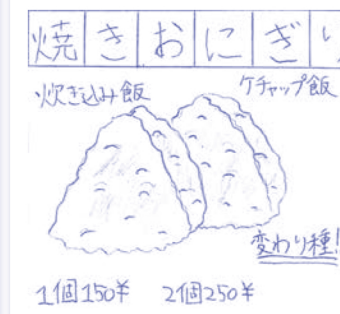 焼きおにぎり
炊き込み飯
ケチャップ飯
変わり種!
1個150¥ 2個250¥